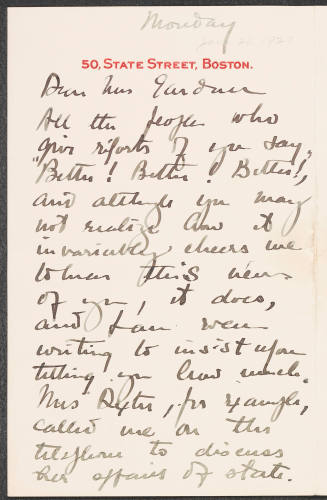 Monday
50, STATE STREET, BOSTON.
Dear Mrs Gardner
All the people who
give reports of you say,
"Better! Better! Better!",
and although you may
not realize how it
invariably cheers me
to hear this news
of you, it does,
and I am even
writing to insist upon
telling you how much.
Mrs Dexter, for example,
called me on the
telephone to discuss
her affairs of state.